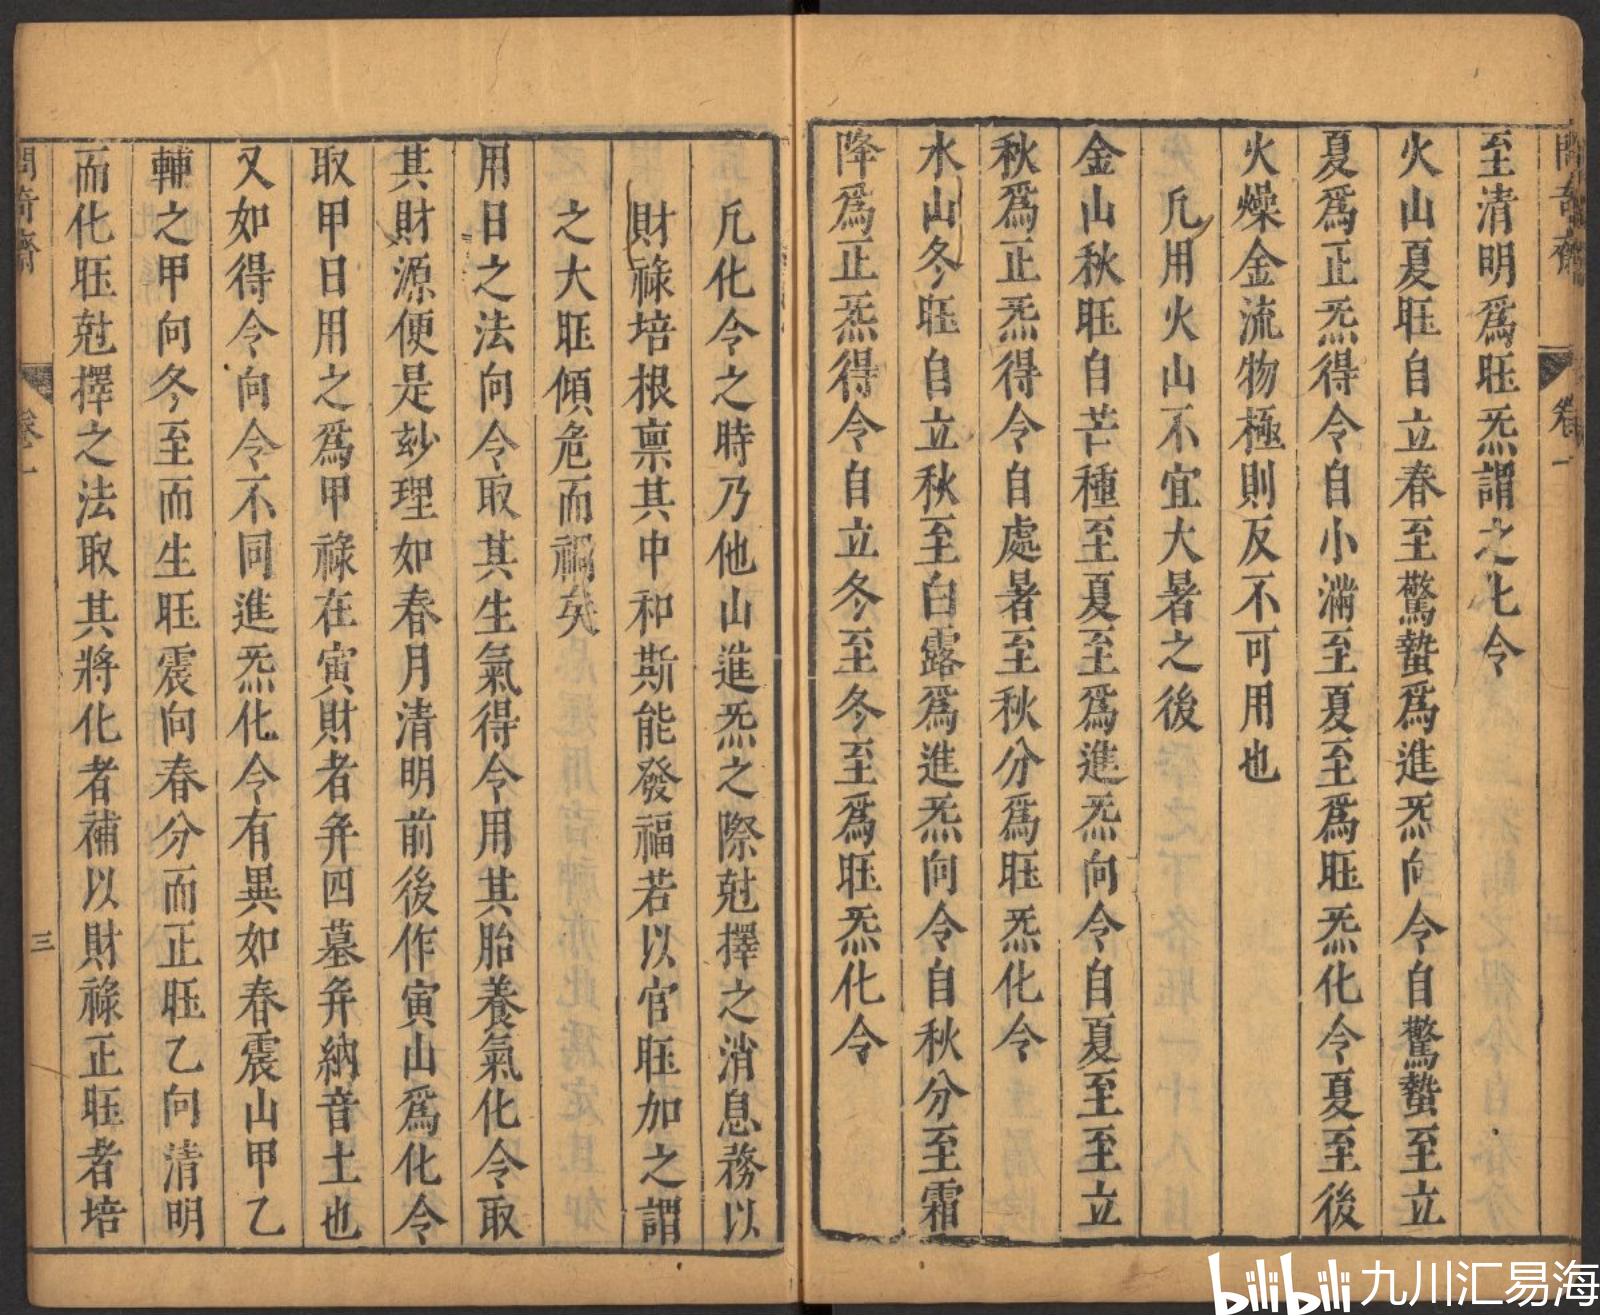 至清明爲旺炁謂之化令
火山夏旺自立春至驚蟄爲進炁向令自驚蟄至立
夏爲正炁得令自小滿至夏至爲旺炁化令夏至後
火燥金流物極則反不可用也
凢用火山不宜大暑之後
金山秋旺自芒種至夏至爲進炁向令自夏至至立
秋爲正炁得令自處暑至秋分爲旺炁化令
水山冬旺自立秋至白露爲進炁向令自秋分至霜
降爲正炁得令自立冬至冬至爲旺炁化令
凢化令之時乃他山進炁之際尅擇之消息務以
財祿培根禀其中和斯能發福若以官旺加之謂
之大旺傾危而禍矣
用日之法向令取其生氣得令用其胎養氣化令取
其財源便是玅理如春月清明前後作寅山爲化令
取甲日用之爲甲祿在寅財者弁四墓弁納音土也
又如得令向令不同進炁化令有異如春震山甲乙
輔之甲向冬至而生旺震向春分而正旺乙向清明
而化旺尅擇之法取其將化者補以財祿正旺者培
卷一
三
bilibili 九川汇易海